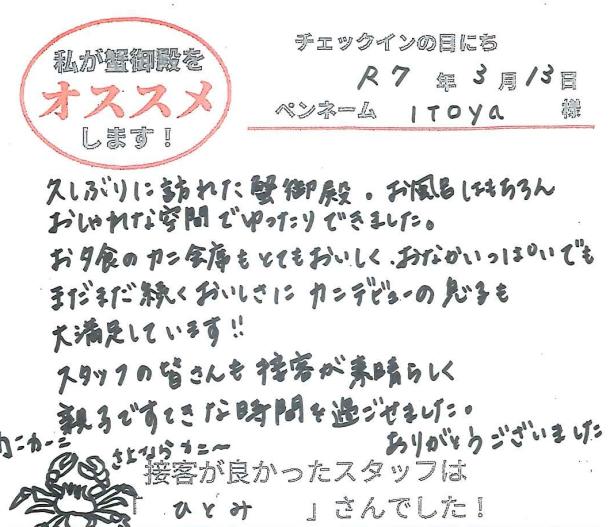 私が蟹御殿を
オススメ
します！
チェックインの日にち
R7年3月13日
ペンネーム ITOYA 様
久しぶりに訪れた蟹御殿。お風呂はもちろん
おしゃれな空間でゆったりできました。
お夕食のカニ会席もとてもおいしく、おなかいっぱいでも
まだまだ続くおいしさにカニデビューの息子も
大満足しています!!
スタッフの皆さんも接客が素晴らしく
親子ですてきな時間を過ごせました。
ありがとうございました
カニカーニ
さよならカニ〜
接客が良かったスタッフは
「ひとみ」さんでした！